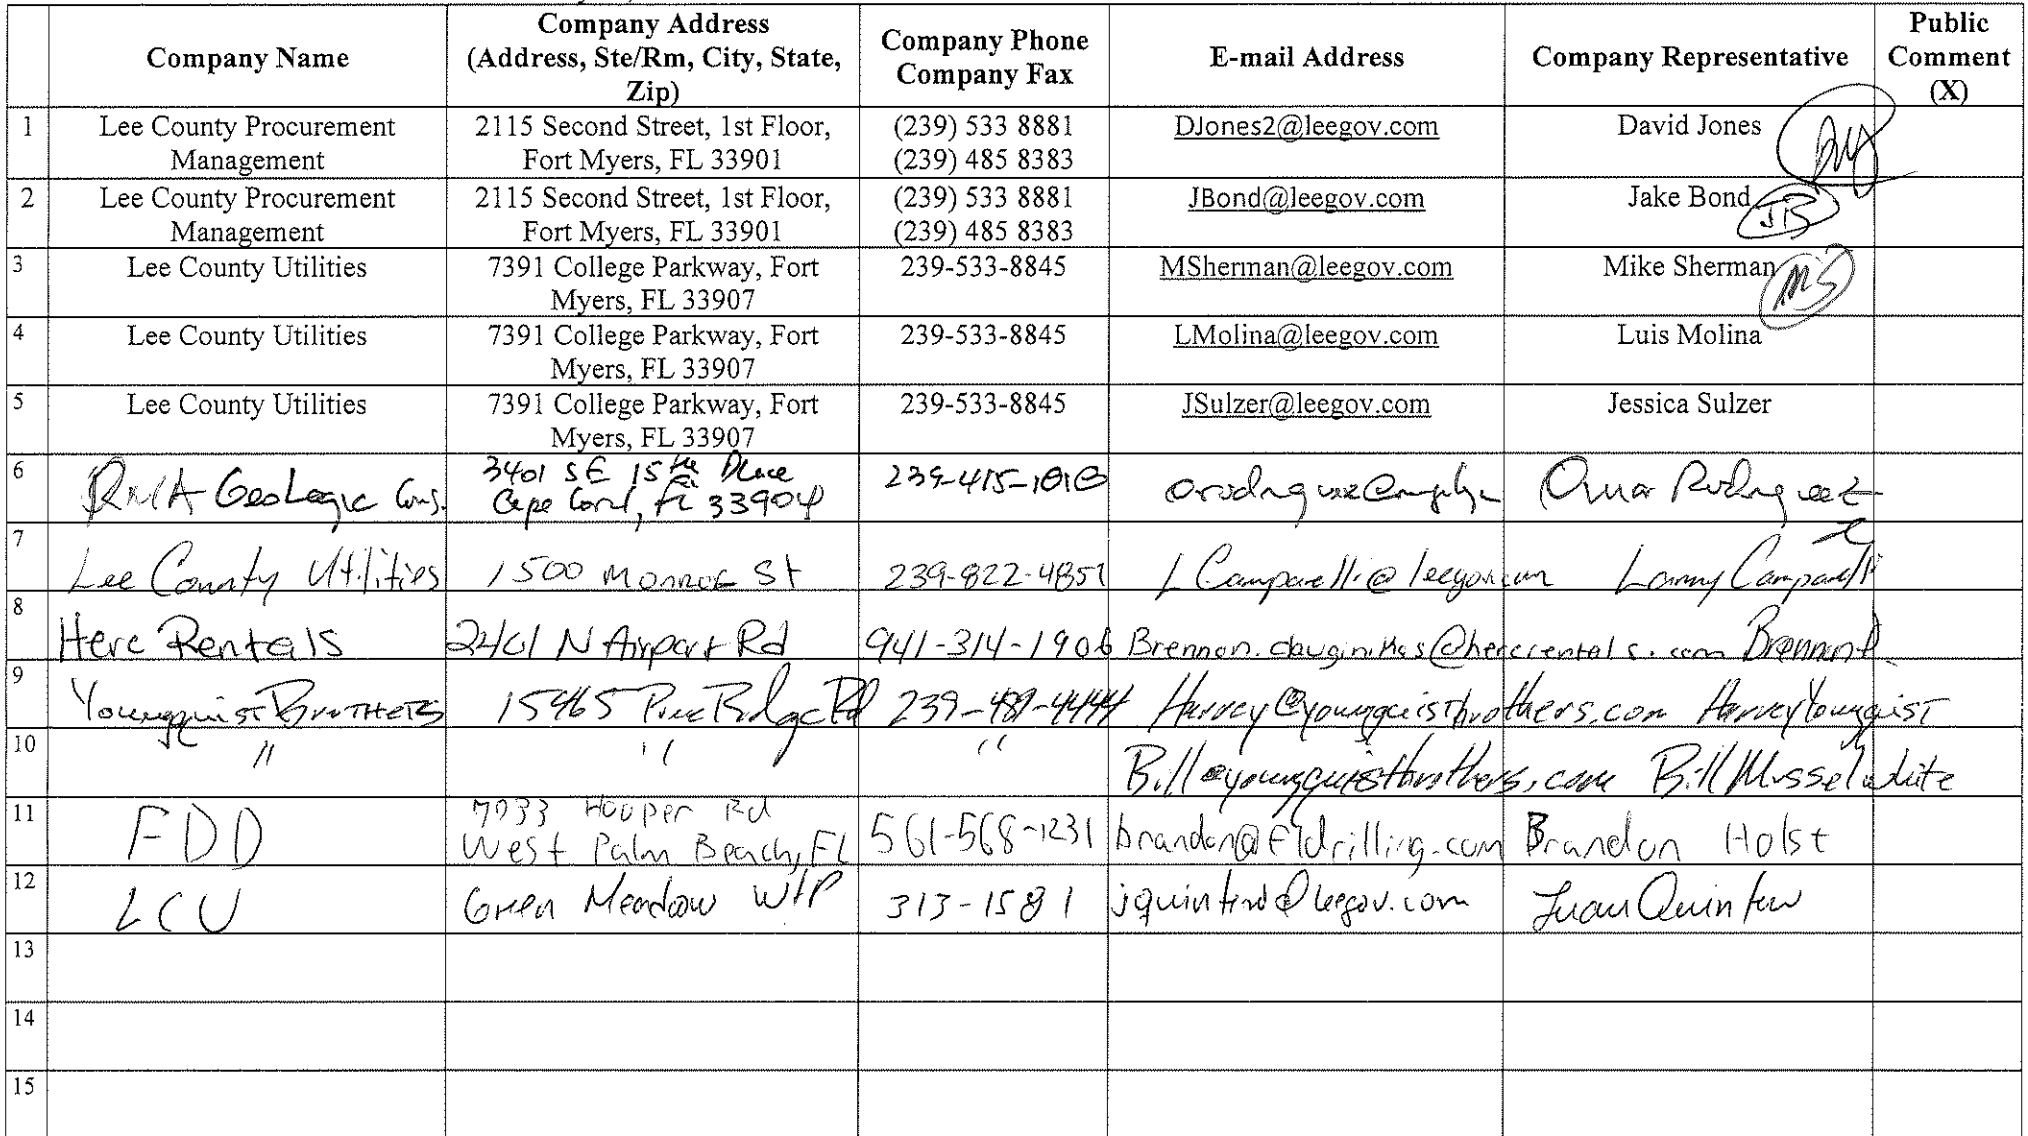 Company Name
Company Address
(Address, Ste/Rm, City, State,
Zip)
Company Phone
Company Fax
E-mail Address
Company Representative
Public
Comment
(X)
1
Lee County Procurement
Management
2115 Second Street, 1st Floor,
Fort Myers, FL 33901
(239) 533 8881
(239) 485 8383
DJones2@leegov.com
David Jones
2
Lee County Procurement
Management
2115 Second Street, 1st Floor,
Fort Myers, FL 33901
(239) 533 8881
(239) 485 8383
JBond@leegov.com
Jake Bond
JB
3
Lee County Utilities
7391 College Parkway, Fort
Myers, FL 33907
239-533-8845
MSherman@leegov.com
Mike Sherman
MS
4
Lee County Utilities
7391 College Parkway, Fort
Myers, FL 33907
239-533-8845
LMolina@leegov.com
Luis Molina
5
Lee County Utilities
7391 College Parkway, Fort
Myers, FL 33907
239-533-8845
JSulzer@leegov.com
Jessica Sulzer
6
RMA GeoLogic Cons.
3401 SE 15th Place
Cape Coral, FL 33904
Omar Rodriguez
7
Lee County Utilities
1500 Monroe St
239-822-4851
LCamparelli@leegov.com
Camparelli
8
Herc Rentals
2401 N Airport Rd
941-314-1906
Brennan
9
Youngquist BroTHerS
15465 Pine Ridge Rd
239-489-4444
Harvey@youngquistbrothers.com
Harvey Youngquist
10
"
"
"
Bill@youngquistbrothers.com
Bill Musselwhite
11
FDD
7933 Hooper Rd
West Palm Beach, FL
561-568-1231
brandon@fldrilling.com
Brandon Holst
12
LCU
Green Meadow WTP
313-1581
jquintero@leegov.com
Juan Quintero
13
14
15